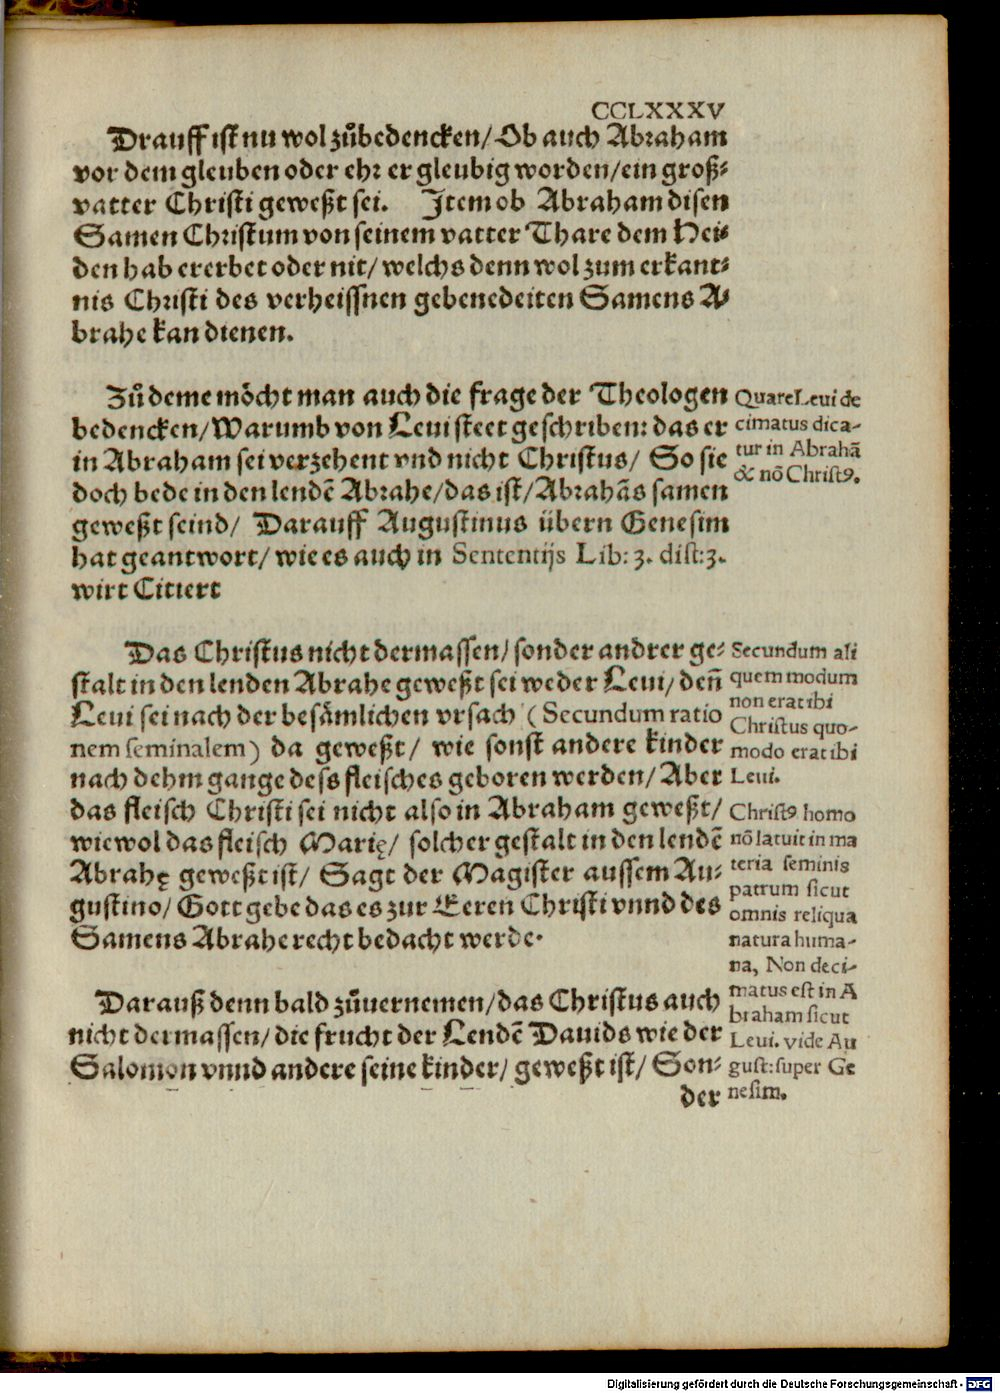 CCLXXXV
Drauff ist nu wol zůbedencken/ Ob auch Abraham
vor dem gleuben oder ehr er gleubig worden/ ein groß-
vatter Christi geweßt sei. Item ob Abraham disen
Samen Christum von seinem vatter Thare dem Hei-
den hab ererbet oder nit/ welchs denn wol zum erkant-
nis Christi des verheissnen gebenedeiten Samens A-
brahe kan dienen.
Zů deme möcht man auch die frage der Theologen
bedencken/ Warumb von Leui steet geschriben: das er
in Abraham sei verzehent vnd nicht Christus/ So sie
doch bede in den lendē Abrahe/ das ist/ Abrahās samen
geweßt seind/ Darauff Augustinus übern Genesim
hat geantwort/ wie es auch in Sententijs Lib: 3. dist: 3.
wirt Citiert
QuareLeui de
cimatus dica-
tur in Abrahā
& nō Christꝰ.
Das Christus nicht dermassen/ sonder andrer ge-
stalt in den lenden Abrahe geweßt sei weder Leui/ deñ
Leui sei nach der besämlichen vrsach (Secundum ratio
nem seminalem) da geweßt/ wie sonst andere kinder
nach dehm gange dess fleisches geboren werden/ Aber
das fleisch Christi sei nicht also in Abraham geweßt/
wiewol das fleisch Marię/ solcher gestalt in den lendē
Abrahę geweßt ist/ Sagt der Magister aussem Au-
gustino/ Gott gebe das es zur Eeren Christi vnnd des
Samens Abrahe recht bedacht werde.
Secundum ali
quem modum
non erat ibi
Christus quo-
modo erat ibi
Leui.
Christꝰ homo
nō latuit in ma
teria seminis
patrum sicut
omnis reliqua
natura huma-
na, Non deci-
matus est in A
braham sicut
Leui. vide Au
gust: super Ge
nesim.
Darauß denn bald zůuernemen/ das Christus auch
nicht dermassen/ die frucht der Lendē Dauids wie der
Salomon vnnd andere seine kinder/ geweßt ist/ Son-
der
Digitalisierung gefördert durch die Deutsche Forschungsgemeinschaft - DFG